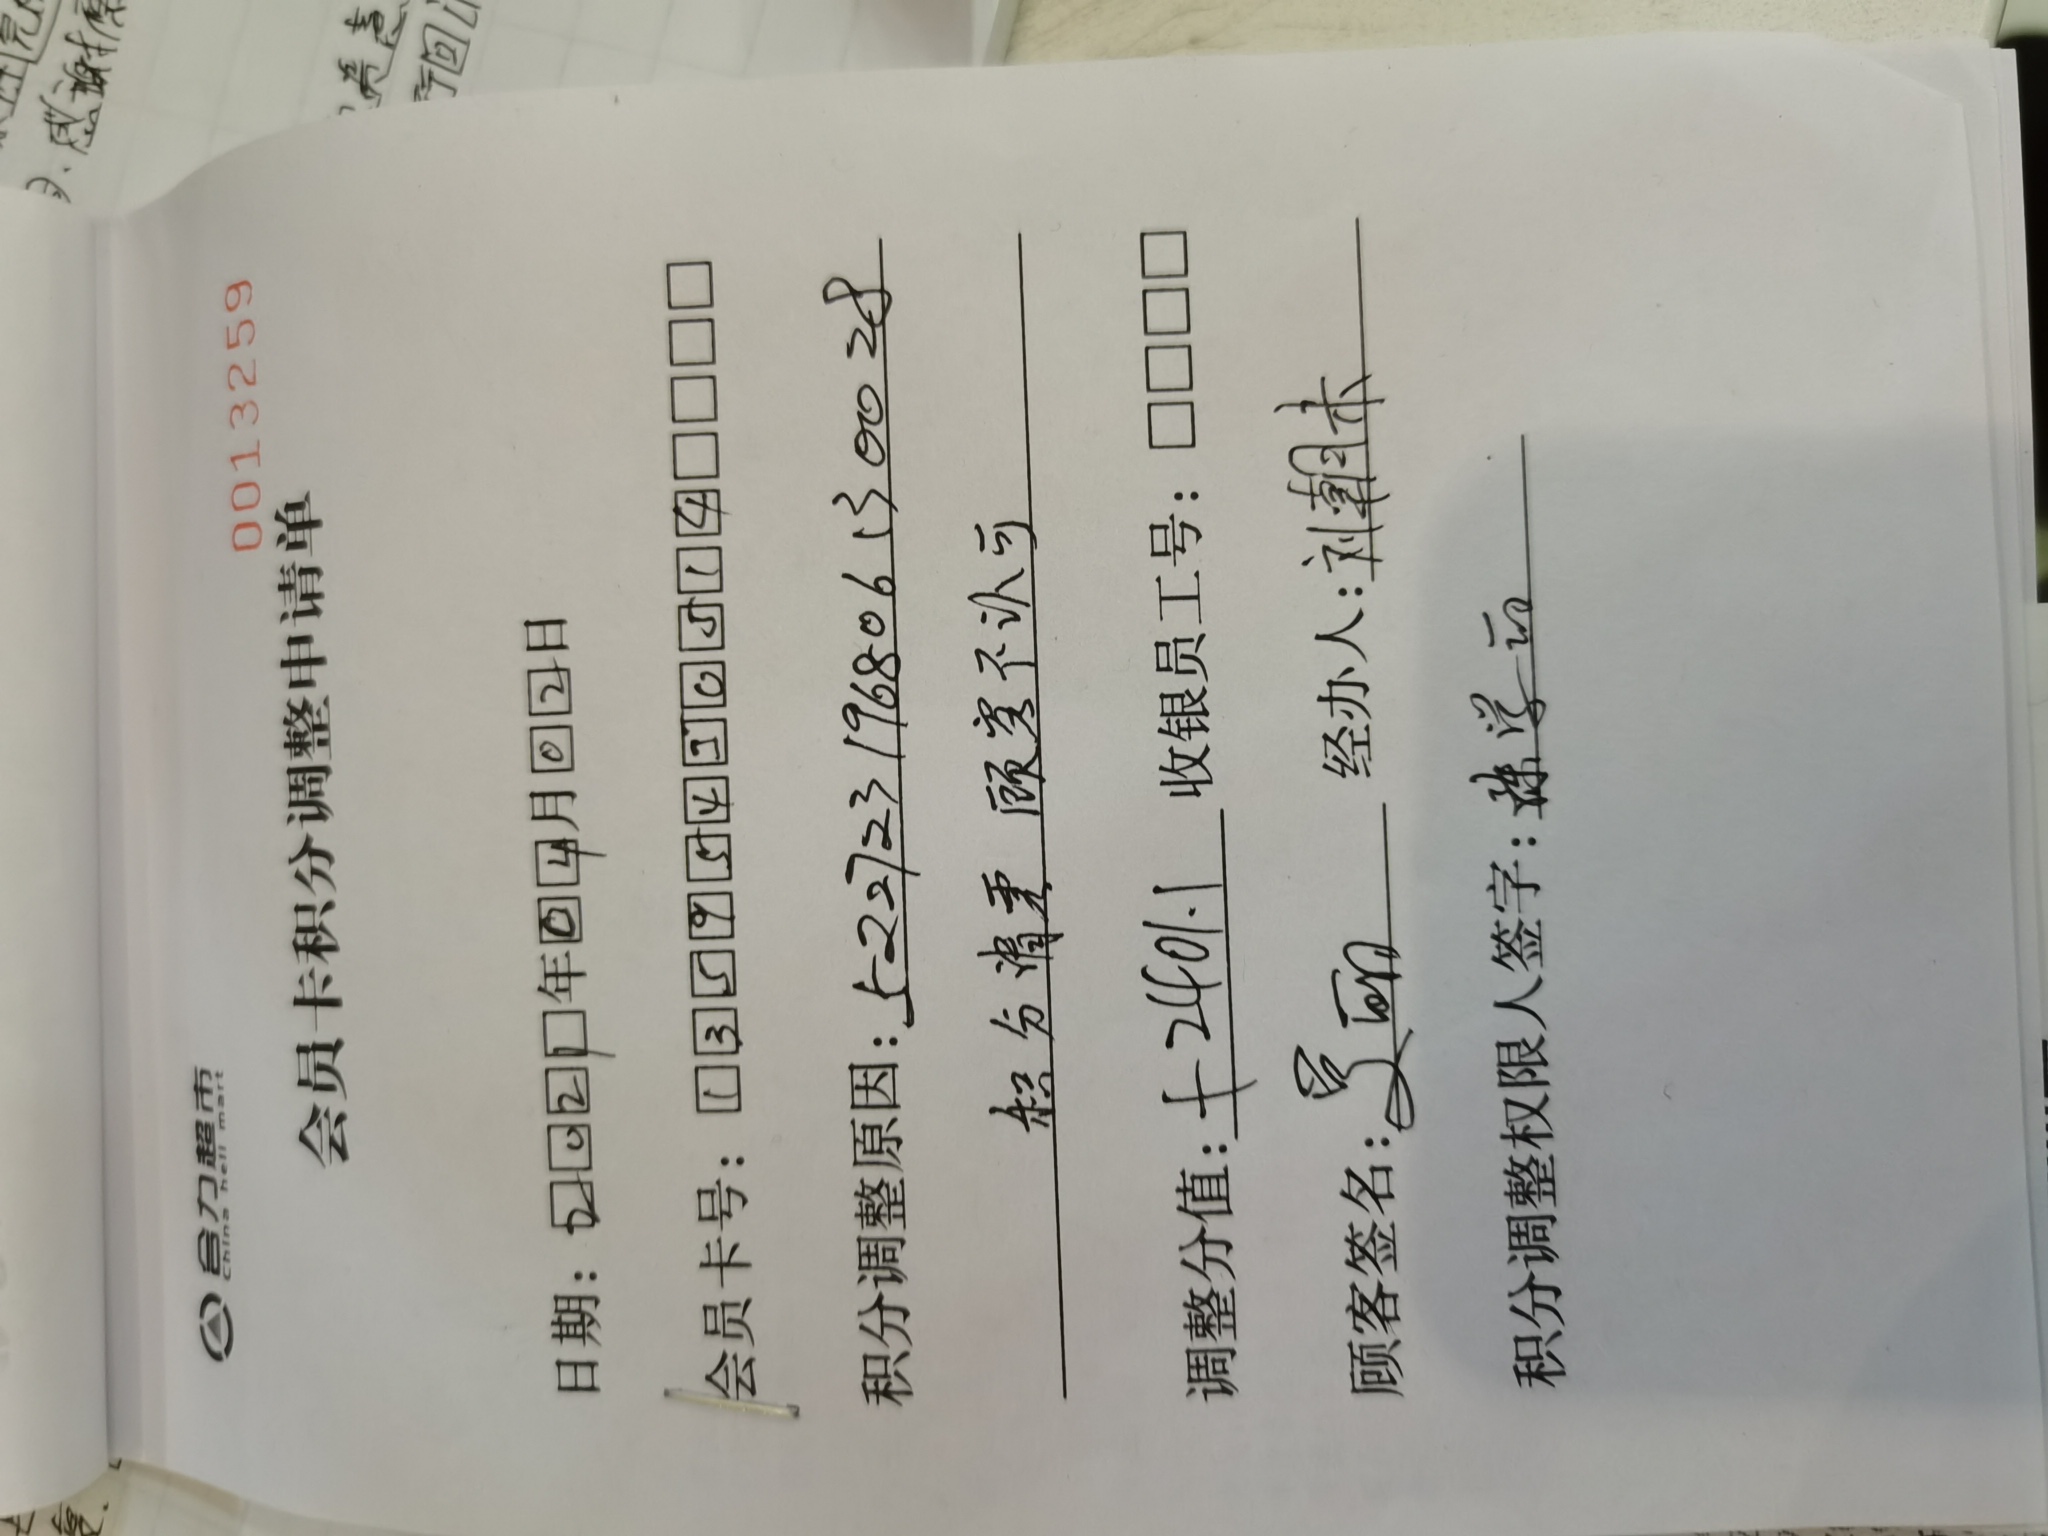 0013259
合力超市
China heli mart
会员卡积分调整申请单
日期：2021年04月02日
会员卡号：13595430514
积分调整原因：522723196806130028
积分消重 顾客不认可
调整分值：+2401.1 收银员工号：
顾客签名：吴丽 经办人：刘朝未
积分调整权限人签字：